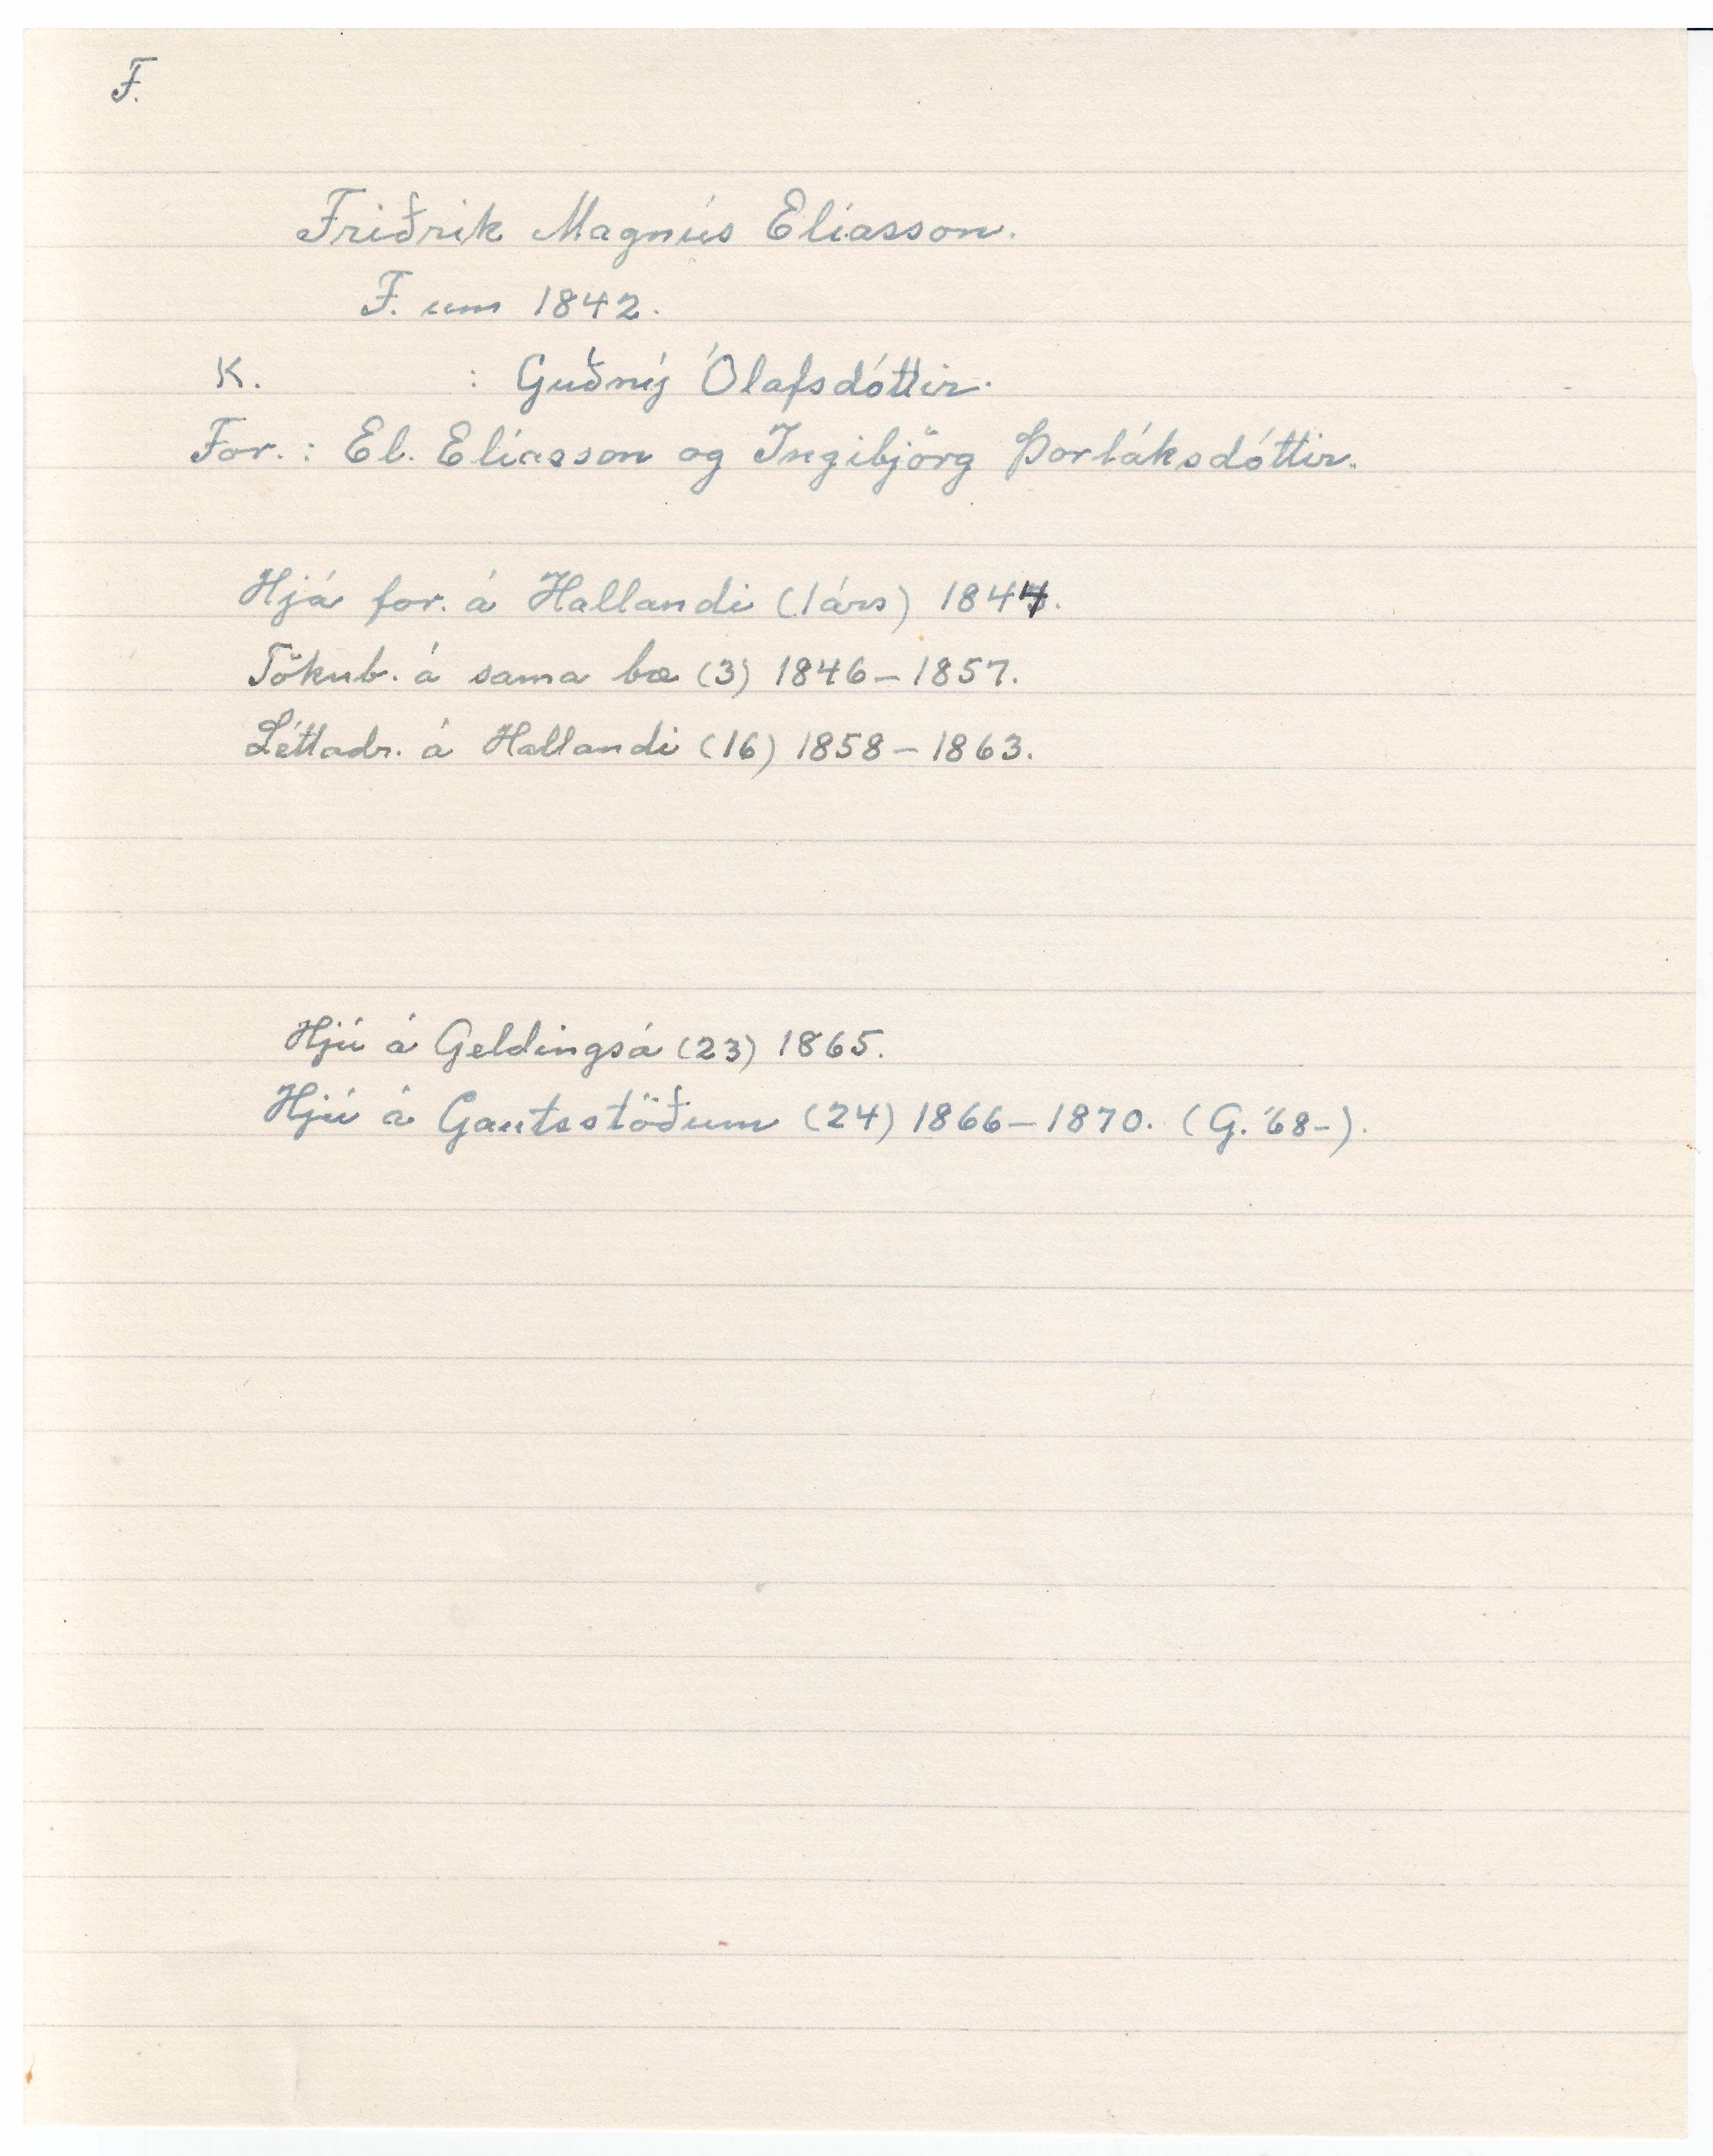 F.
Friðrik Magnús Elíasson.
F. um 1842.
K. : Guðný Ólafsdóttir.
For. : El. Elíasson og Ingibjörg Þorláksdóttir.
Hjá for. á Hallandi (1árs) 1844.
Tökub. á sama bæ (3) 1846-1857.
Léttadr. á Hallandi (16) 1858-1863.
Hjú á Geldingsá (23) 1865.
Hjú á Gautsstöðum (24) 1866-1870. (G. '68-).